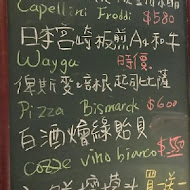 Capellini Freddi $580
日本宮崎板煎A4和牛
Wayga 時價
俾斯麥培根起司比薩
Pizza Bismarck $600
白酒燴綠貽貝
Cozze vino bianco $550